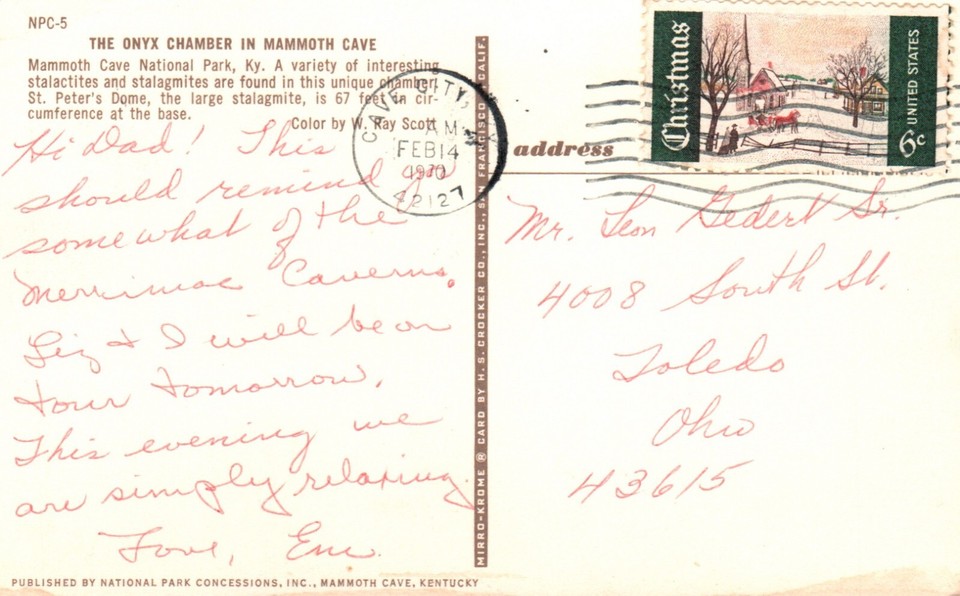 NPC-5
THE ONYX CHAMBER IN MAMMOTH CAVE
Mammoth Cave National Park, Ky. A variety of interesting
stalactites and stalagmites are found in this unique chamber.
St. Peter's Dome, the large stalagmite, is 67 feet in cir-
cumference at the base.
Color by W. Ray Scott
Hi Dad! This
should remind you
somewhat of the
Merrimac Caverns.
Liz & I will be on
tour tomorrow.
This evening we
are simply relaxing.
Love, Em
PUBLISHED BY NATIONAL PARK CONCESSIONS, INC., MAMMOTH CAVE, KENTUCKY
MIRRO-KROME ® CARD BY H. S. CROCKER CO., INC., SAN FRANCISCO, CALIF.
CAVE CITY,
AM
FEB 14
1970
42127
Christmas
UNITED STATES
6c
address
Mr. Leon Gedert Sr.
4008 South St.
Toledo
Ohio
43615